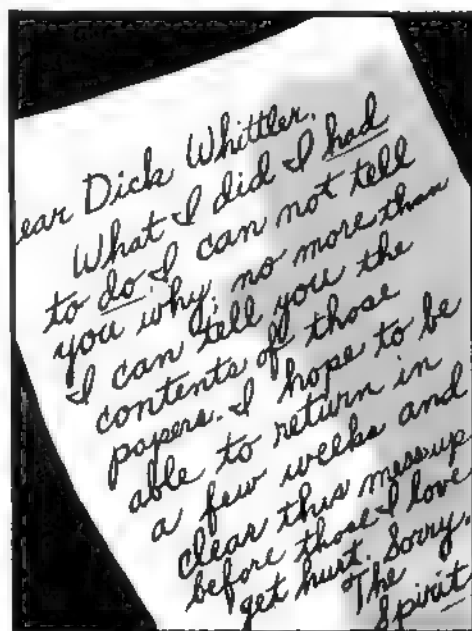 ear Dick Whittler,
What I did I had
to do. I can not tell
you why; no more than
I can tell you the
contents of those
papers. I hope to be
able to return in
a few weeks and
clear this mess up
before those I love
get hurt. Sorry,
The
Spirit